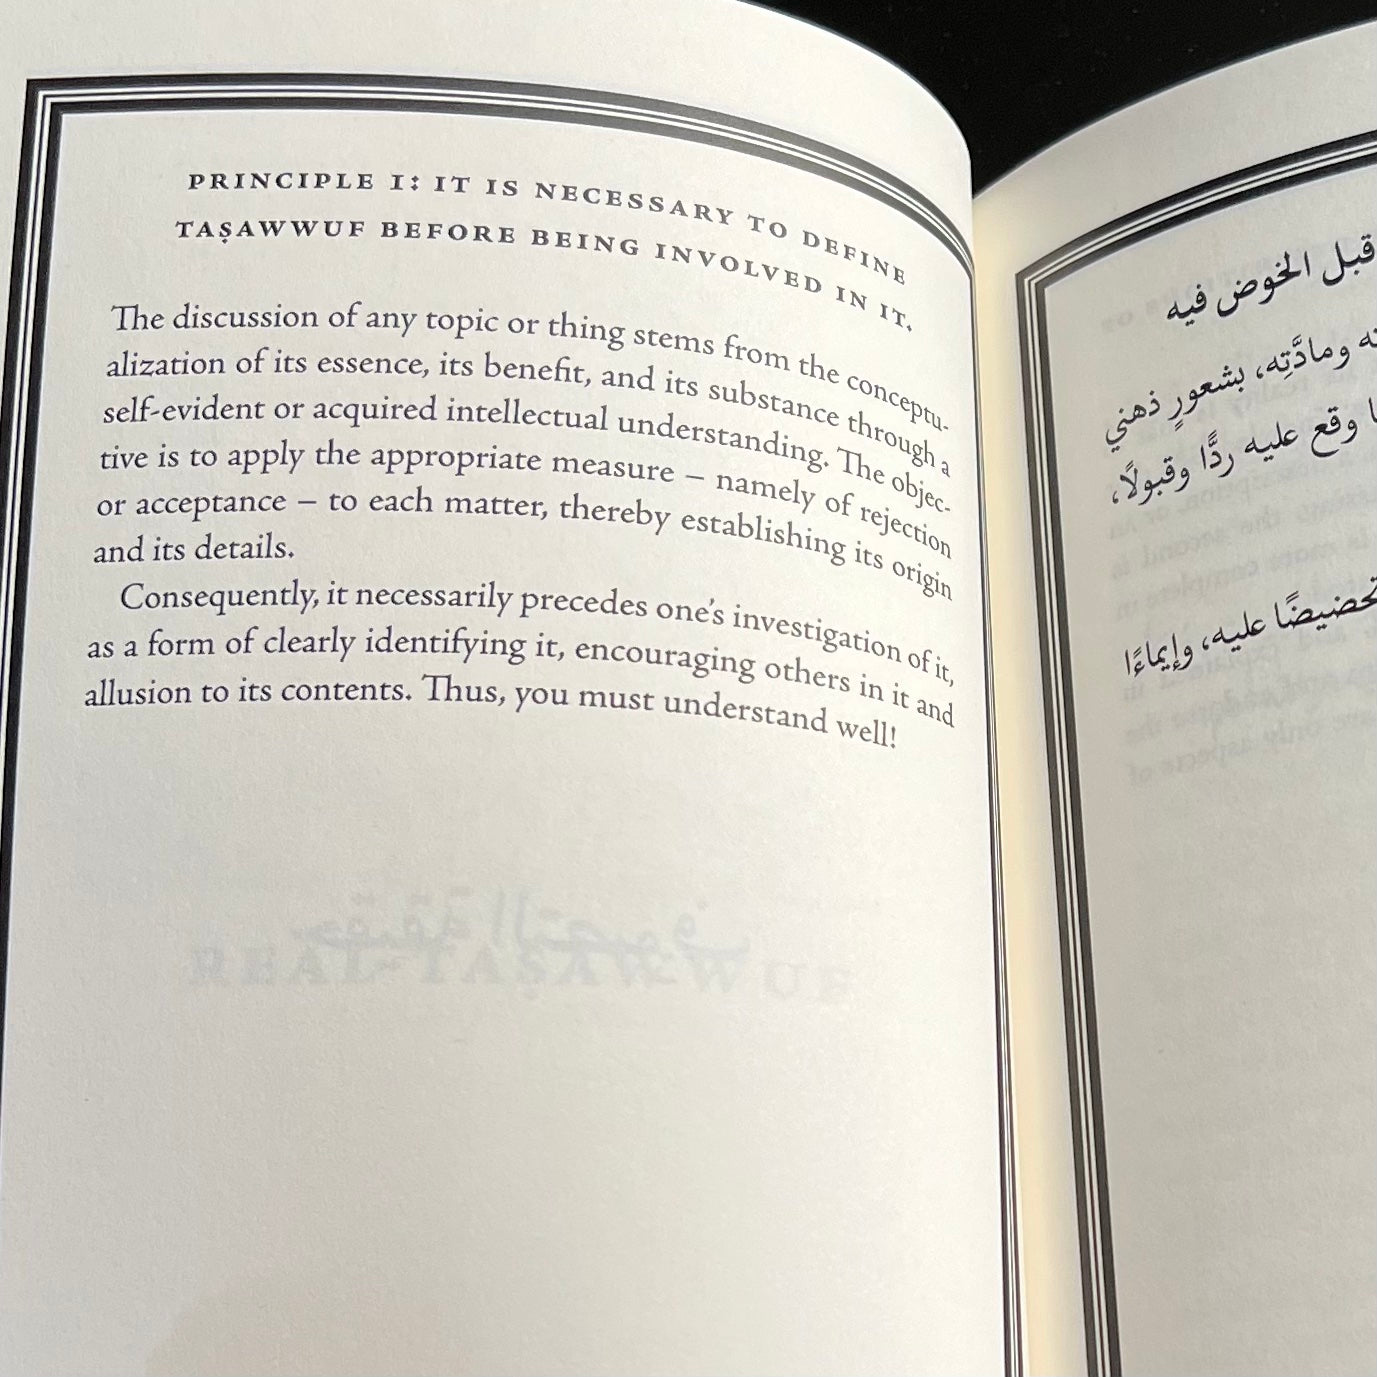 PRINCIPLE 1: IT IS NECESSARY TO DEFINE
TAṢAWWUF BEFORE BEING INVOLVED IN IT.
The discussion of any topic or thing stems from the conceptu-
alization of its essence, its benefit, and its substance through a
self-evident or acquired intellectual understanding. The objec-
tive is to apply the appropriate measure – namely of rejection
or acceptance – to each matter, thereby establishing its origin
and its details.
Consequently, it necessarily precedes one's investigation of it,
as a form of clearly identifying it, encouraging others in it and
allusion to its contents. Thus, you must understand well!
REAL TAṢAWWUF
قبل الخوض فيه
ومادَّتِه، بشعورٍ ذهني
وقع عليه ردًّا وقبولًا،
تحضيضًا عليه، وإيماءًا